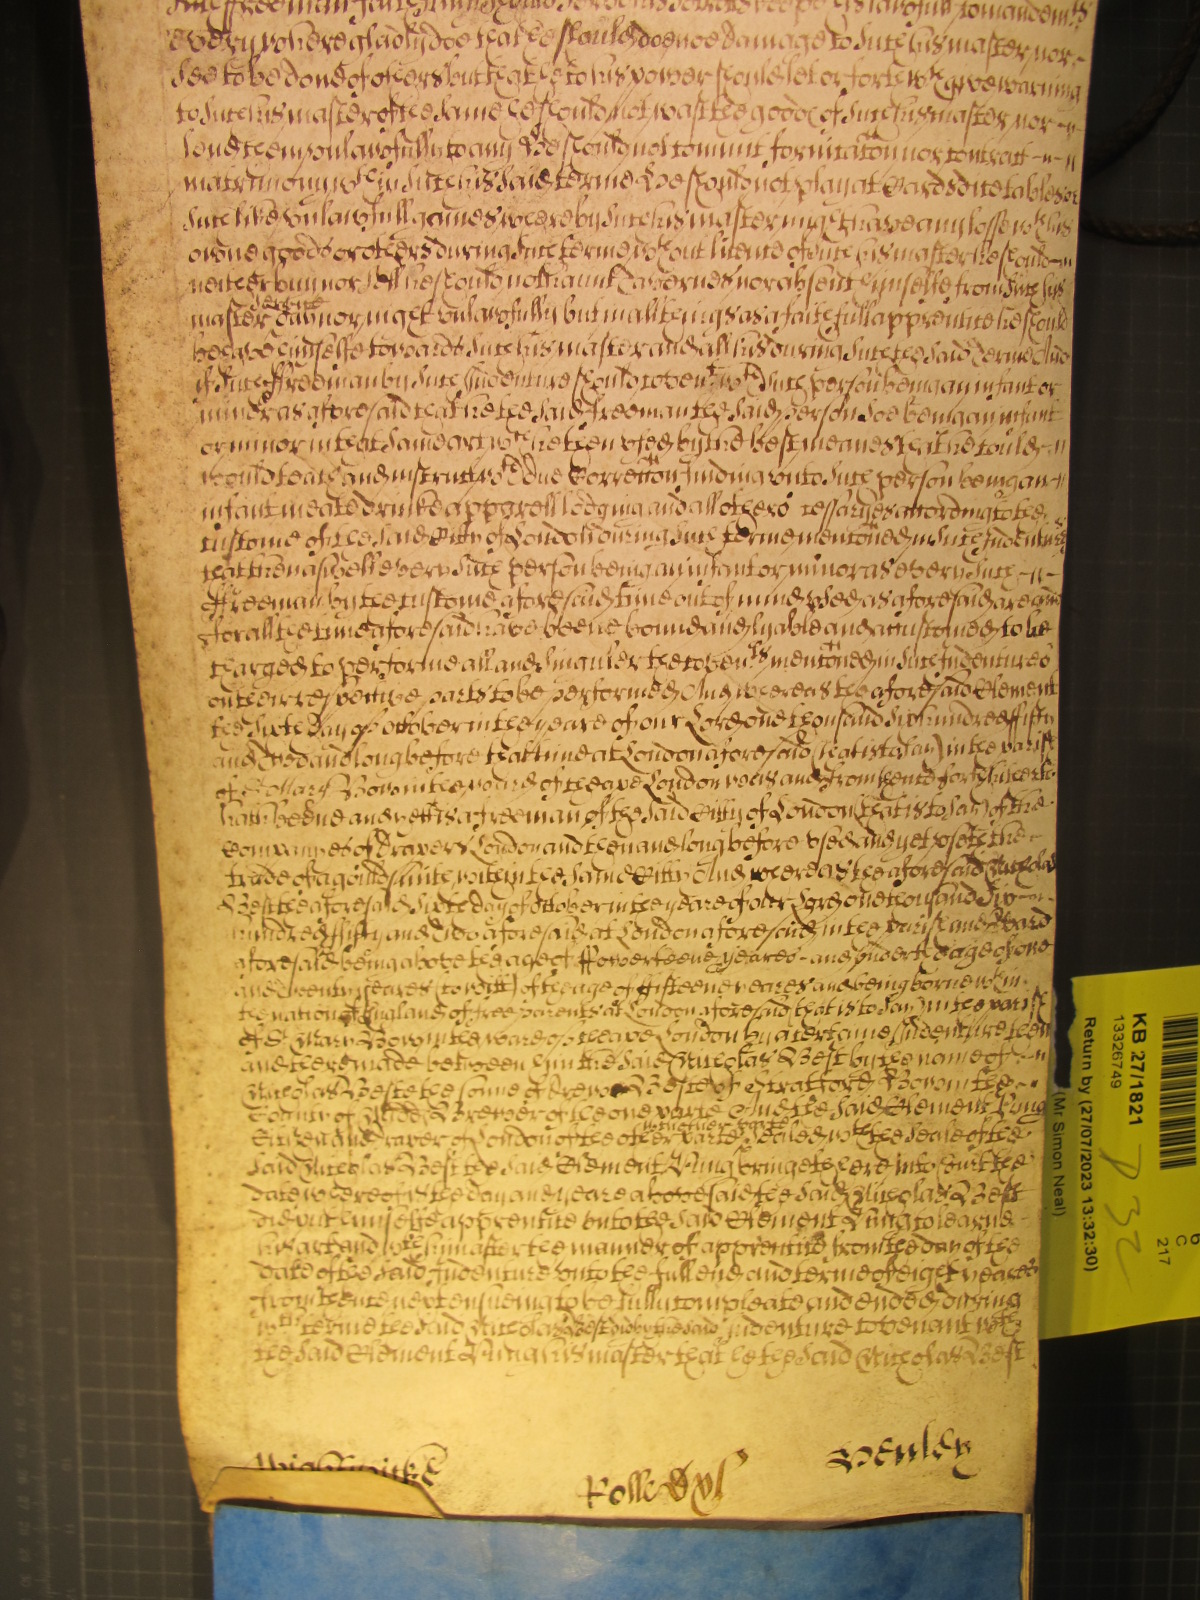 every where gladly doe that he should doe noe damage to such his master nor
see to be done of others but that he to his power should let or forthwth give warning
to such his master of the same he should not wast the goods of such his master nor
lend them unlawfully to any He should not committ fornicacon nor contract
matrimony wthin such his said terme He should not play at Cards dice tables or
such like unlawfull games whereby such his master might have any losse wth his
owne goods or others during such terme wthout licence of such his master he should
neither buy nor sell he should not haunt Tavernes nor absent himselfe from such his
master service day nor night unlawfully but in all things as a faithfull apprentice he should
behave himselfe towards such his master and all his during such the said Terme And
if such ffreeman by such Indenture should coven't wth such person being an infant or
minor as aforesaid that he the said ffreeman the said person soe being an infant
or minor in that same art wch he then used by the best meanes that he could
would teach and instruct wth due Correccon finding unto such person being an
infant meate drinke apparell lodging and all other necessaryes according to the
custome of the said Citty of London during such terme menconed in such Indenture
that then aswell every such person being an infant or minor as every such
ffreeman by the custome aforesaid time out of mind used as aforesaid are and
for all the time aforesaid have beene bound and lyable and accustomed to be
charged to performe all and singuler the coven'ts menconed in such Indentures
on their respective parts to be performed And whereas the aforesaid Clement
the sixth day of October in the yeare of our Lord one thousand six hundred fifty
and two and long before that time at London aforesaid (that is to say) in the parish
of St Mary Bow in the ward of Cheape London was and from thence forth hitherto
hath beene and yet is a freeman of the said Citty of London that is to say of the
Companyes of Drapers London and then and long before used and yet useth the
trade of a gouldsmith within the same Citty And whereas the aforesaid Nicholas
Best the aforesaid sixth day of October in the yeare of our Lord one thousand six
hundred fifty and two aforesaid at London aforesaid in the parish and Ward
aforesaid being above the age of ffowerteene yeares and under the age of one
and twenty yeares (to witt) of the age of fifteene yeares and being borne wthin
the nation of England of free parents at London aforesaid that is to say in the parish
of St Mary Bow in the ward of Cheape London by a certaine Indenture then
and there made betweene him the said Nicholas Best by the name of
Nicholas Best the sonne of Andrew Best of Stratford Bow in the
County of Midd Brewer of the one parte And the said Clement Punge
Citizen and Draper of London of the other parte wch other parte sealed wth the seale of the
said Nicholas Best the said Clement Punge bringeth here into Court the
date whereof is the day and yeare abovesaid the said Nicholas Best
did put himselfe apprentice unto the said Clement Punge to learne
his Art and wth him after the manner of apprentice from the day of the
date of the said Indenture unto the full end and terme of eight yeares
from thence next ensueing to be fully compleate and ended during
wch terme the said Nicholas Best did by the said Indenture covenant wth
the said Clement Punge his master that he the said Nicholas Best
Wightwicke
Rolle xvj
Henley
KB 27/1821
13326749
Return by (27/07/2023 13:32:30)
(Mr Simon Neal)
C
217